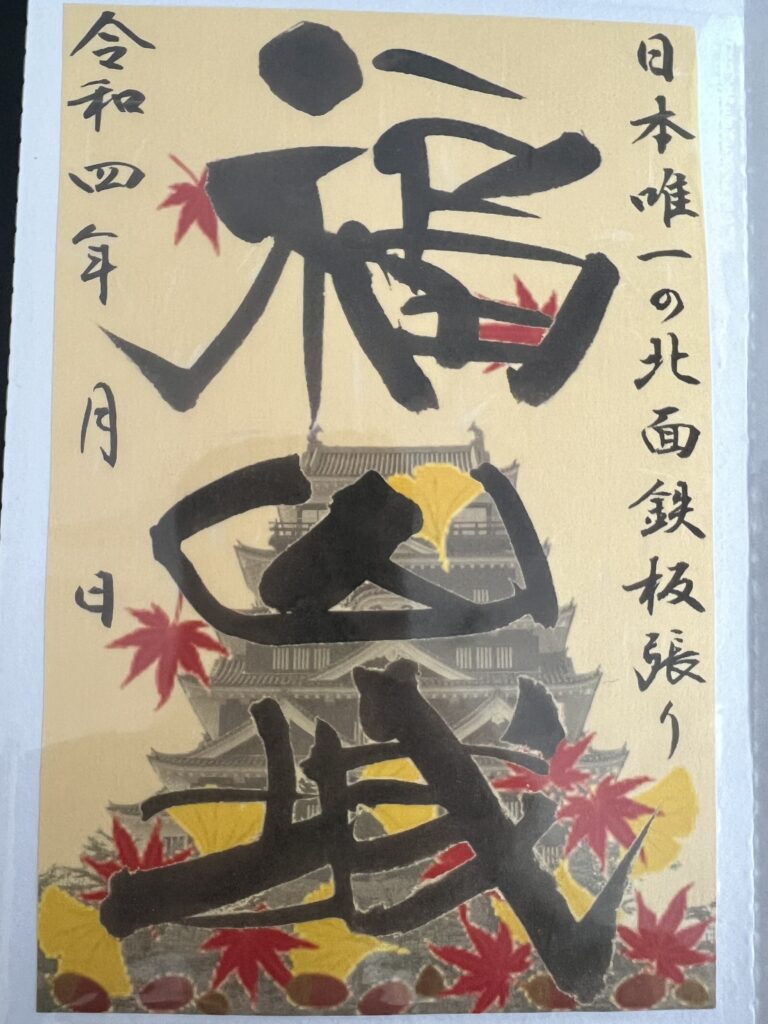 日本唯一の北面鉄板張り
福山城
令和四年 月 日